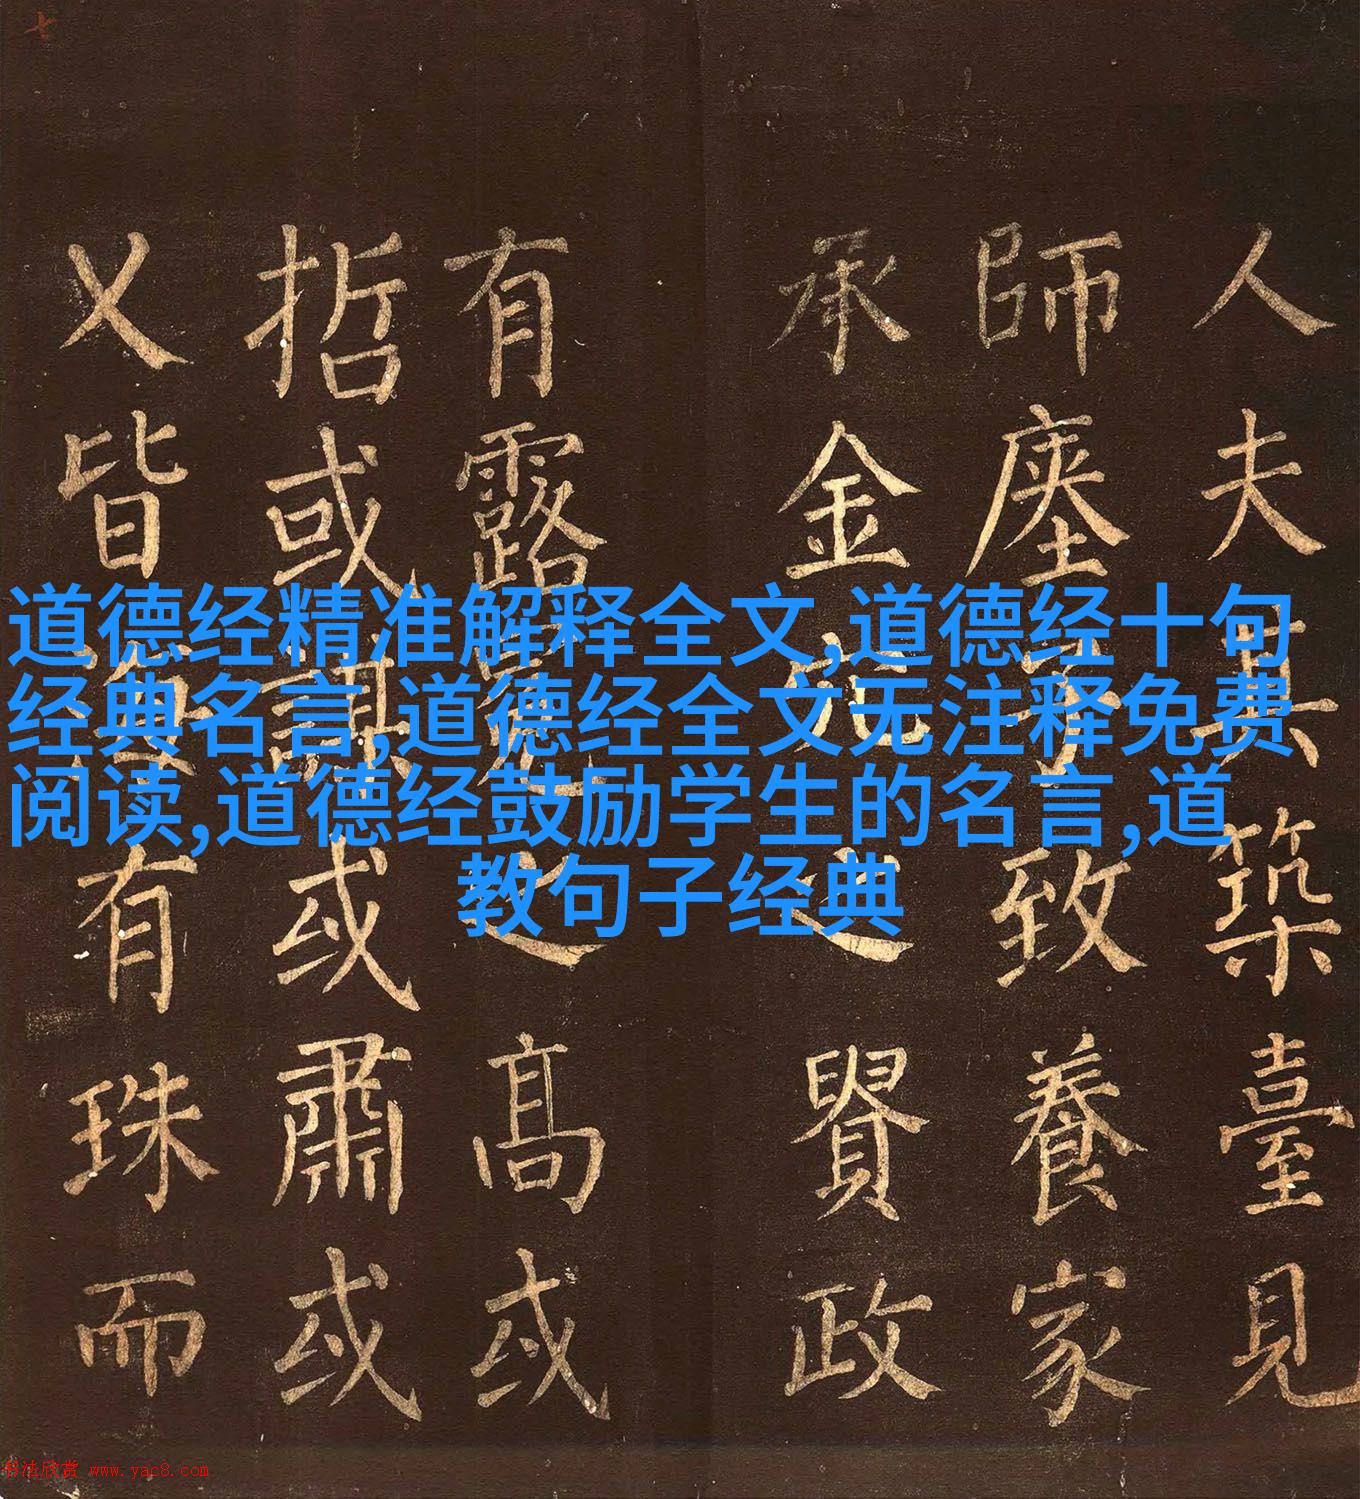 道德经精准解释全文,道德经十句
经典名言,道德经全文无注释免费
阅读,道德经鼓励学生的名言,道
教句子经典
人夫其築臺見
師廛致養家
承金之賢政
有露冕之高或
哲或謀或肅或
乂皆有珠而
书法欣赏 www.yac8.com